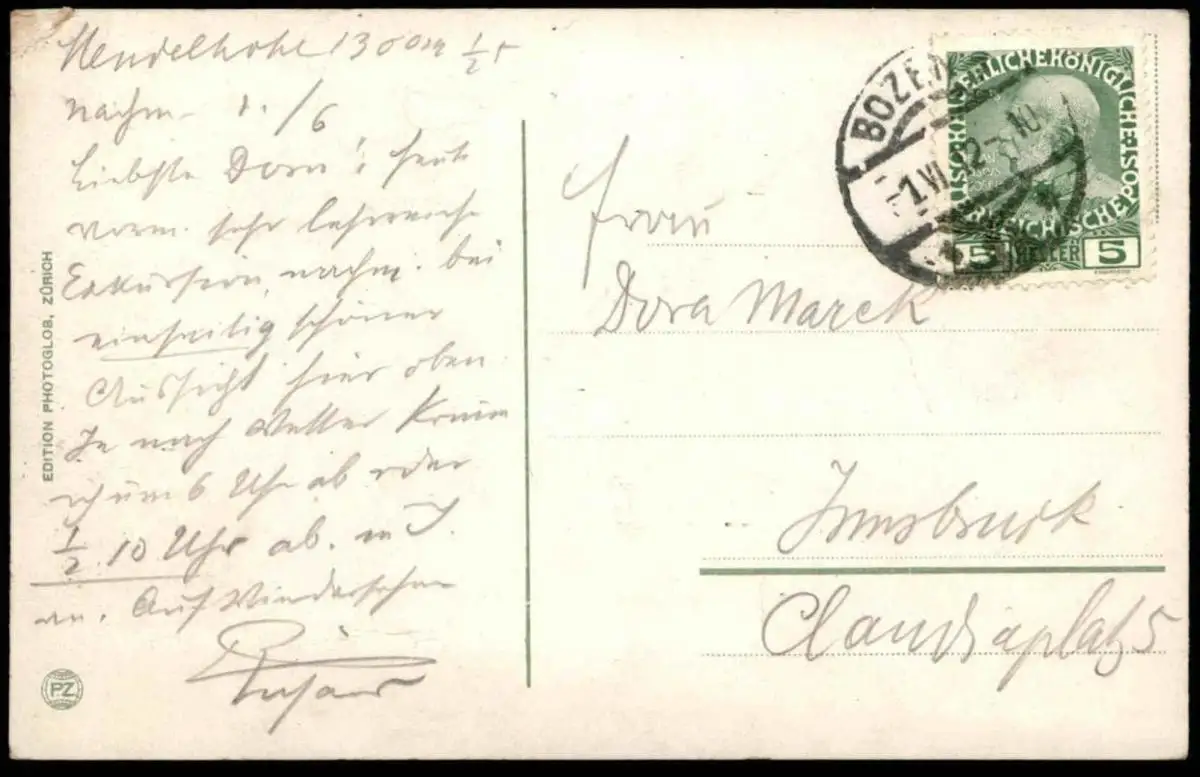 Mendelhöhe 1300m ½ 5
nachm. 1./6
Liebste Dora! heute
vorm. sehr lehrreiche
Exkursion, nachm. bei
einseitig schöner
Aussicht hier oben.
Je nach Wetter komm
ich um 6 Uhr ab oder
½ 10 Uhr ab. in I.
an. Auf Wiedersehen
Richard
EDITION PHOTOGLOB, ZÜRICH
PZ
BOZEN
1.VI.12
KAISERLICHE KÖNIGLICHE
ÖSTERREICHISCHE POST
5 HELLER 5
Frau
Dora Marek
Innsbruck
Claudiaplatz 5